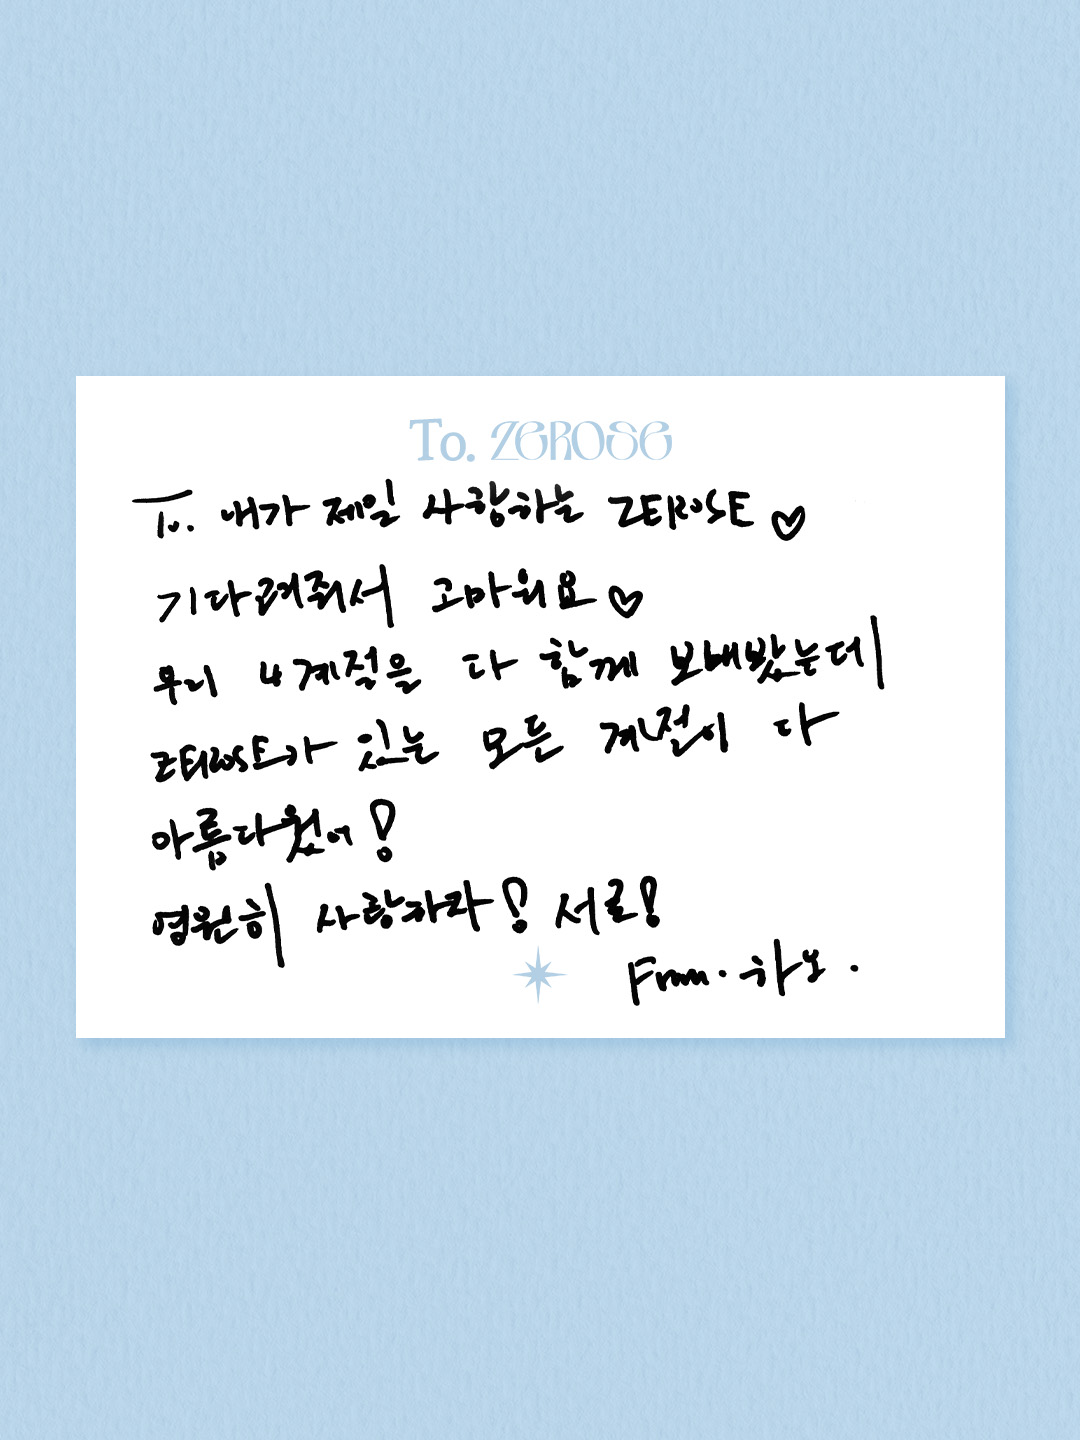 To. ZEROSE
To. 내가 제일 사랑하는 ZEROSE ♡
기다려줘서 고마워요 ♡
우리 4계절을 다 함께 보내봤는데
ZEROSE가 있는 모든 계절이 다
아름다웠어!
영원히 사랑하자! 서로!
From. 하오.